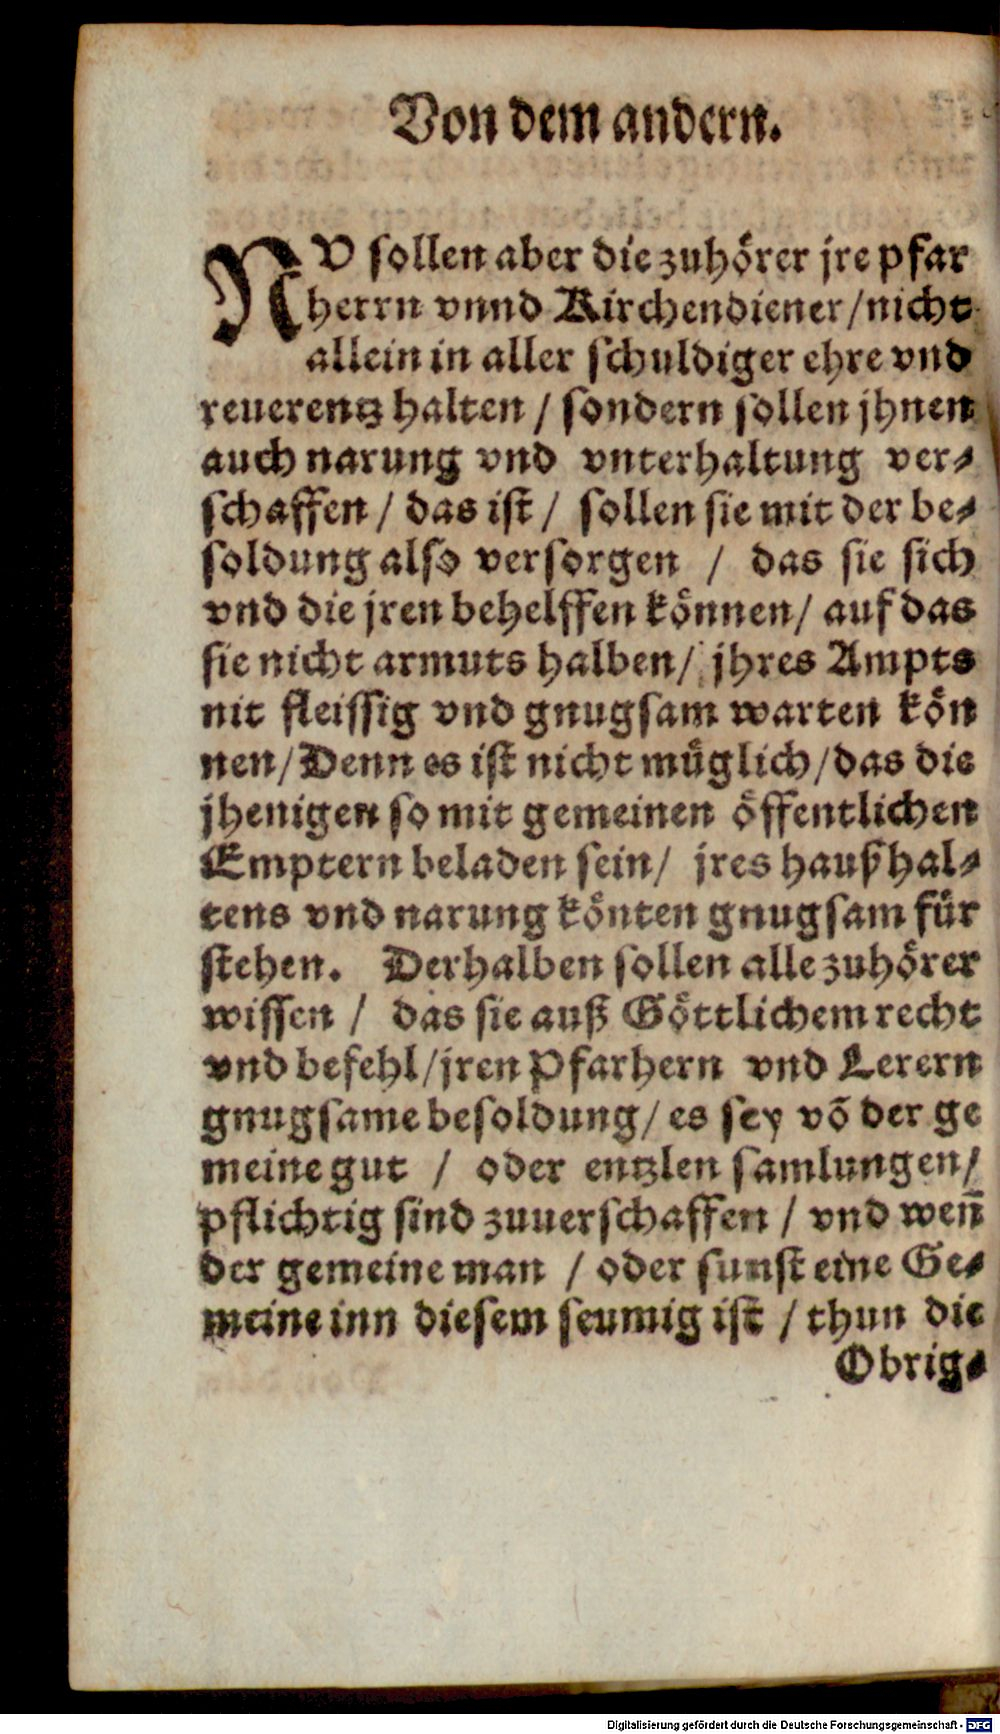 Von dem andern.
NV sollen aber die zuhörer jre pfar
herrn vnnd Kirchendiener/nicht
allein in aller schuldiger ehre vnd
reuerentz halten / sondern sollen jhnen
auch narung vnd vnterhaltung ver-
schaffen / das ist / sollen sie mit der be-
soldung also versorgen / das sie sich
vnd die jren behelffen können/ auf das
sie nicht armuts halben/ jhres Ampts
nit fleissig vnd gnugsam warten kön
nen/Denn es ist nicht müglich/das die
jhenigen so mit gemeinen öffentlichen
Emptern beladen sein/ jres haußhal-
tens vnd narung könten gnugsam für
stehen. Derhalben sollen alle zuhörer
wissen / das sie auß Göttlichem recht
vnd befehl/jren Pfarhern vnd Lerern
gnugsame besoldung/ es sey võ der ge
meine gut / oder entzlen samlungen/
pflichtig sind zuuerschaffen / vnd weñ
der gemeine man / oder sunst eine Ge-
meine inn diesem seumig ist / thun die
Obrig-
Digitalisierung gefördert durch die Deutsche Forschungsgemeinschaft - DFG